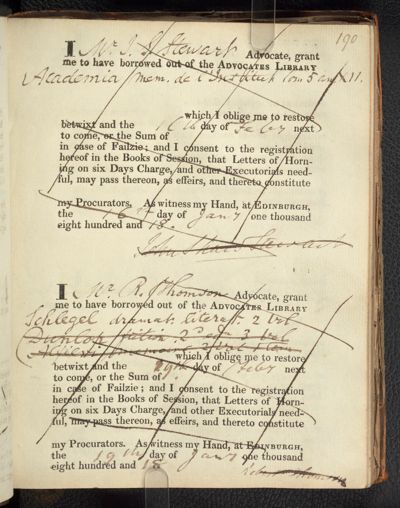 190
I Mr J. S. Stewart Advocate, grant
me to have borrowed out of the ADVOCATES LIBRARY
Academia / mem. de l'Institut tom 5 and 11.
which I oblige me to restore
betwixt and the 16th day of Feby next
to come, or the Sum of
in case of Failzie; and I consent to the registration
hereof in the Books of Session, that Letters of Horn-
ing on six Days Charge, and other Executorials need-
ful, may pass thereon, as effeirs, and thereto constitute
my Procurators. As witness my Hand, at EDINBURGH,
the 16th day of Jany one thousand
eight hundred and 18.
John Shaw Stewart
I Mr R. Thomson Advocate, grant
me to have borrowed out of the ADVOCATES LIBRARY
Schlegel dramat. literat. 2 vol
Dunlop fiction 2d ed 3 vol
which I oblige me to restore
betwixt and the 29th day of Feby next
to come, or the Sum of
in case of Failzie; and I consent to the registration
hereof in the Books of Session, that Letters of Horn-
ing on six Days Charge, and other Executorials need-
ful, may pass thereon, as effeirs, and thereto constitute
my Procurators. As witness my Hand, at EDINBURGH,
the 19th day of Jany one thousand
eight hundred and 18
Robert Thomson